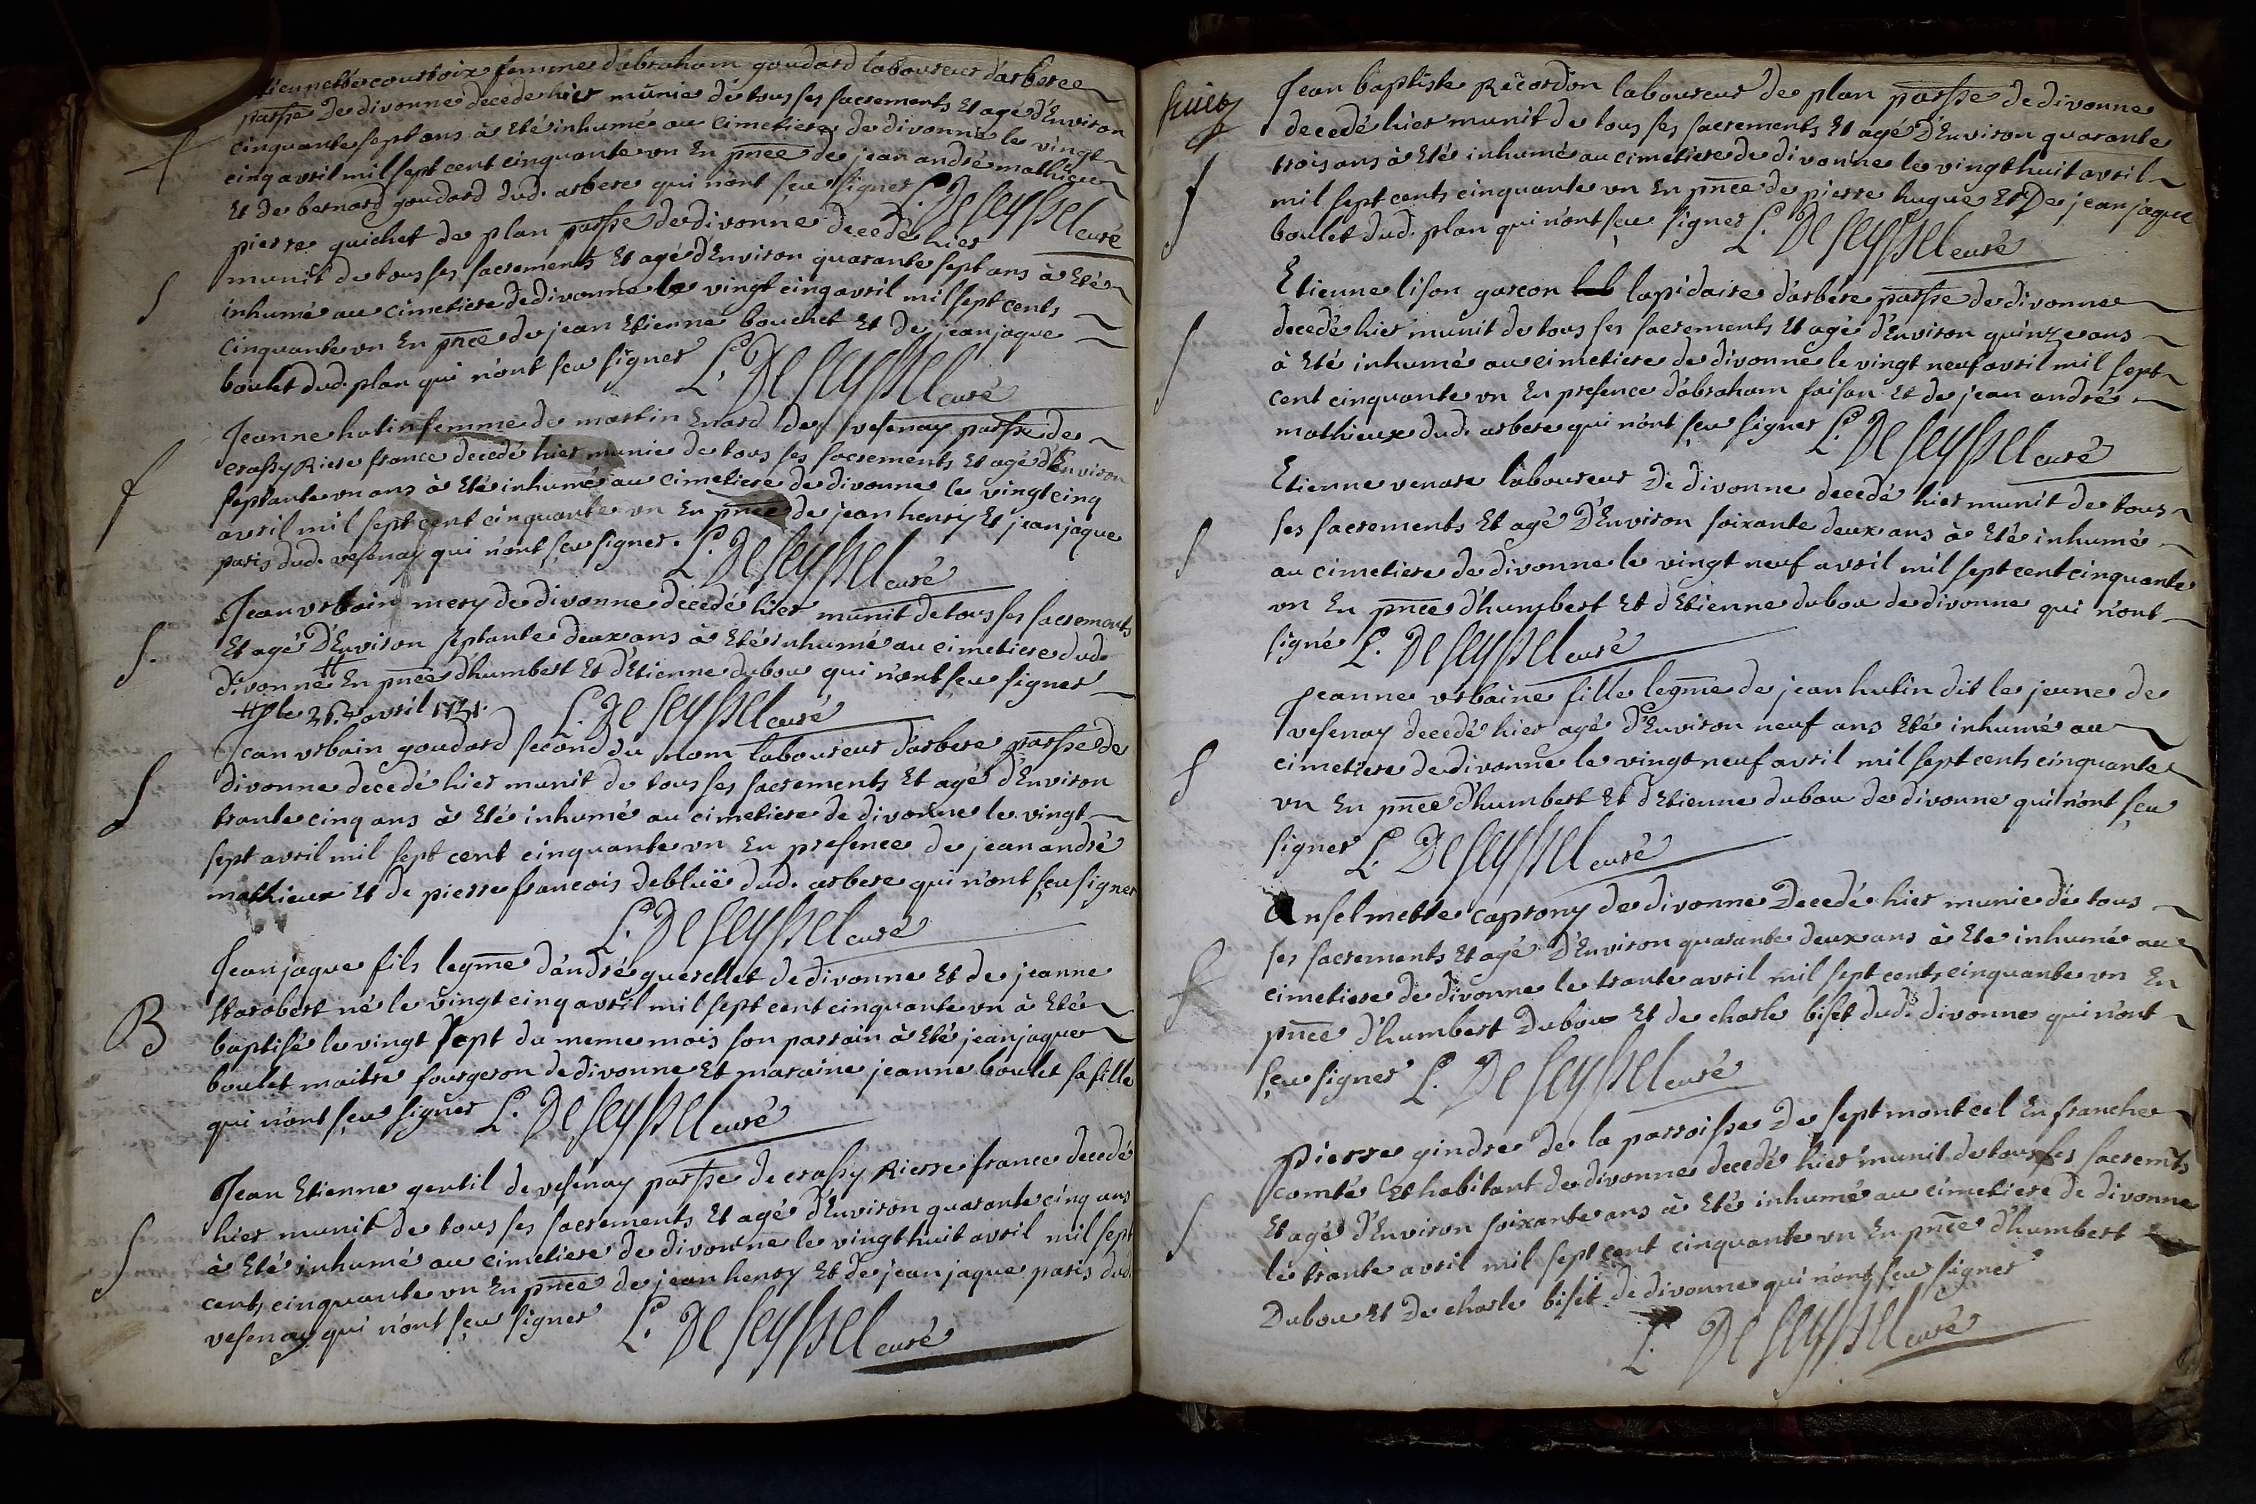 Etiennette courtoix femme d'abraham goudard laboureur d'arbere
parsse de divonne decedé hier munie de tous ses sacrements Et agé d'Environ
cinquante sept ans à Eté inhumé au cimetiere de divonne le vingt
cinq avril mil sept cent cinquante vn En pnce de jean andré mathieu
Et de bernard goudard dud. arbere qui n'ont sçu signer L. De Seyssel curé
pierre guichet de plan parsse de divonne decedé hier
munit de tous ses sacrements Et agé d'Environ quarante sept ans à Eté
inhumé au cimetiere de divonne le vingt cinq avril mil sept cents
cinquante vn En pnce de jean Etienne bouchet Et de jean jaque
boulet dud. plan qui n'ont sçu signer L. De Seyssel curé
Jeanne hutin femme de martin Enard de vesenay parsse de
crassy Riere france decedé hier munie de tous ses sacrements Et agé d'Environ
septante vn ans à Eté inhumé au cimetiere de divonne le vingt cinq
avril mil sept cent cinquante vn En pnce de jean henry Et jean jaque
paris dud. vesenay qui n'ont sçu signer. L. De Seyssel curé
Jean vrbain mery de divonne decedé hier munit de tous ses sacrements
Et agé D'Environ septante deux ans à Eté inhumé au cimetiere dud.
divonne # En pnce d'humbert Et d'Etienne dubou qui n'ont sçu signer
# le 26e avril 1751. L. De Seyssel curé
Jean vrbain goudard second du nom laboureur d'arbere parsse de
divonne decedé hier munit de tous ses sacrements Et agé d'Environ
trante cinq ans à Eté inhumé au cimetiere de divonne le vingt
sept avril mil sept cent cinquante vn En presence de jean andré
mathieux Et de pierre francois debluë dud. arbere qui n'ont sçu signer
L. De Seyssel curé
B Jean jaque fils legme d'andré guerchet de divonne Et de jeanne
Etarobert né le vingt cinq avril mil sept cent cinquante vn à Eté
baptisé le vingt sept du meme mois son parrain à Eté jean jaque
boulet maitre fourgeron de divonne Et maraine jeanne boulet sa fille
qui n'ont sçu signer L. De Seyssel curé
Jean Etienne gentil de vesenay parsse de crassy Rierre france decedé
hier munit de tous ses sacrements Et agé d'Environ quarante cinq ans
à Eté inhumé au cimetiere de divonne le vingt huit avril mil sept
cents cinquante vn En pnce de jean henry Et de jean jaque paris dud.
vesenay qui n'ont sçu signer L. De Seyssel curé
Jean baptiste Recordon laboureur de plan parsse de divonne
decedé hier munit de tous ses sacrements Et agé D'Environ quarante
trois ans à Eté inhumé au cimetiere de divonne le vingt huit avril
mil sept cents cinquante vn En pnce de pierre hugue Et De jean jaque
boulet dud. plan qui n'ont sçu signer L. De Seyssel curé
Etienne lison garcon lapidaire d'arbere parsse de divonne
decedé hier munit de tous ses sacrements Et agé d'Environ quinze ans
à Eté inhumé au cimetiere de divonne le vingt neuf avril mil sept
cent cinquante vn En presence d'abraham faisan Et de jean andré
mathieux dud. arbere qui n'ont sçu signer L. De Seyssel curé
Etienne venare laboureur De divonne decedé hier munit de tous
ses sacrements Et agé D'Environ soixante deux ans à Eté inhumé
au cimetiere de divonne le vingt neuf avril mil sept cent cinquante
vn En pnce d'humbert Et d'Etienne dubou de divonne qui n'ont
signé L. De Seyssel curé
Jeanne vrbaine fille legme de jean hutin dit le jeune de
vesenay decedé hier agé d'Environ neuf ans Eté inhumé au
cimetiere de divonne le vingt neuf avril mil sept cents cinquante
vn En pnce d'humbert Et d'Etienne dubou de divonne qui n'ont sçu
signer L. De Seyssel curé
Anselmette caprony de divonne Decedé hier munie de tous
ses sacrements Et agé D'Environ quarante deux ans à Eté inhumé au
cimetiere de divonne le trante avril mil sept cents cinquante vn En
pnce d'humbert Dubou Et de charle biset dud. divonne qui n'ont
sçu signer L. De Seyssel curé
pierre gindre de la parroisse De septmontcel En franche
comté Et habitant de divonne decedé hier munit de tous ses sacremts
Et agé d'Environ soixante ans à Eté inhumé au cimetiere de divonne
le trante avril mil sept cent cinquante vn En pnce d'humbert
Dubou Et De charle biset de divonne qui n'ont sçu signer
L. De Seyssel curé